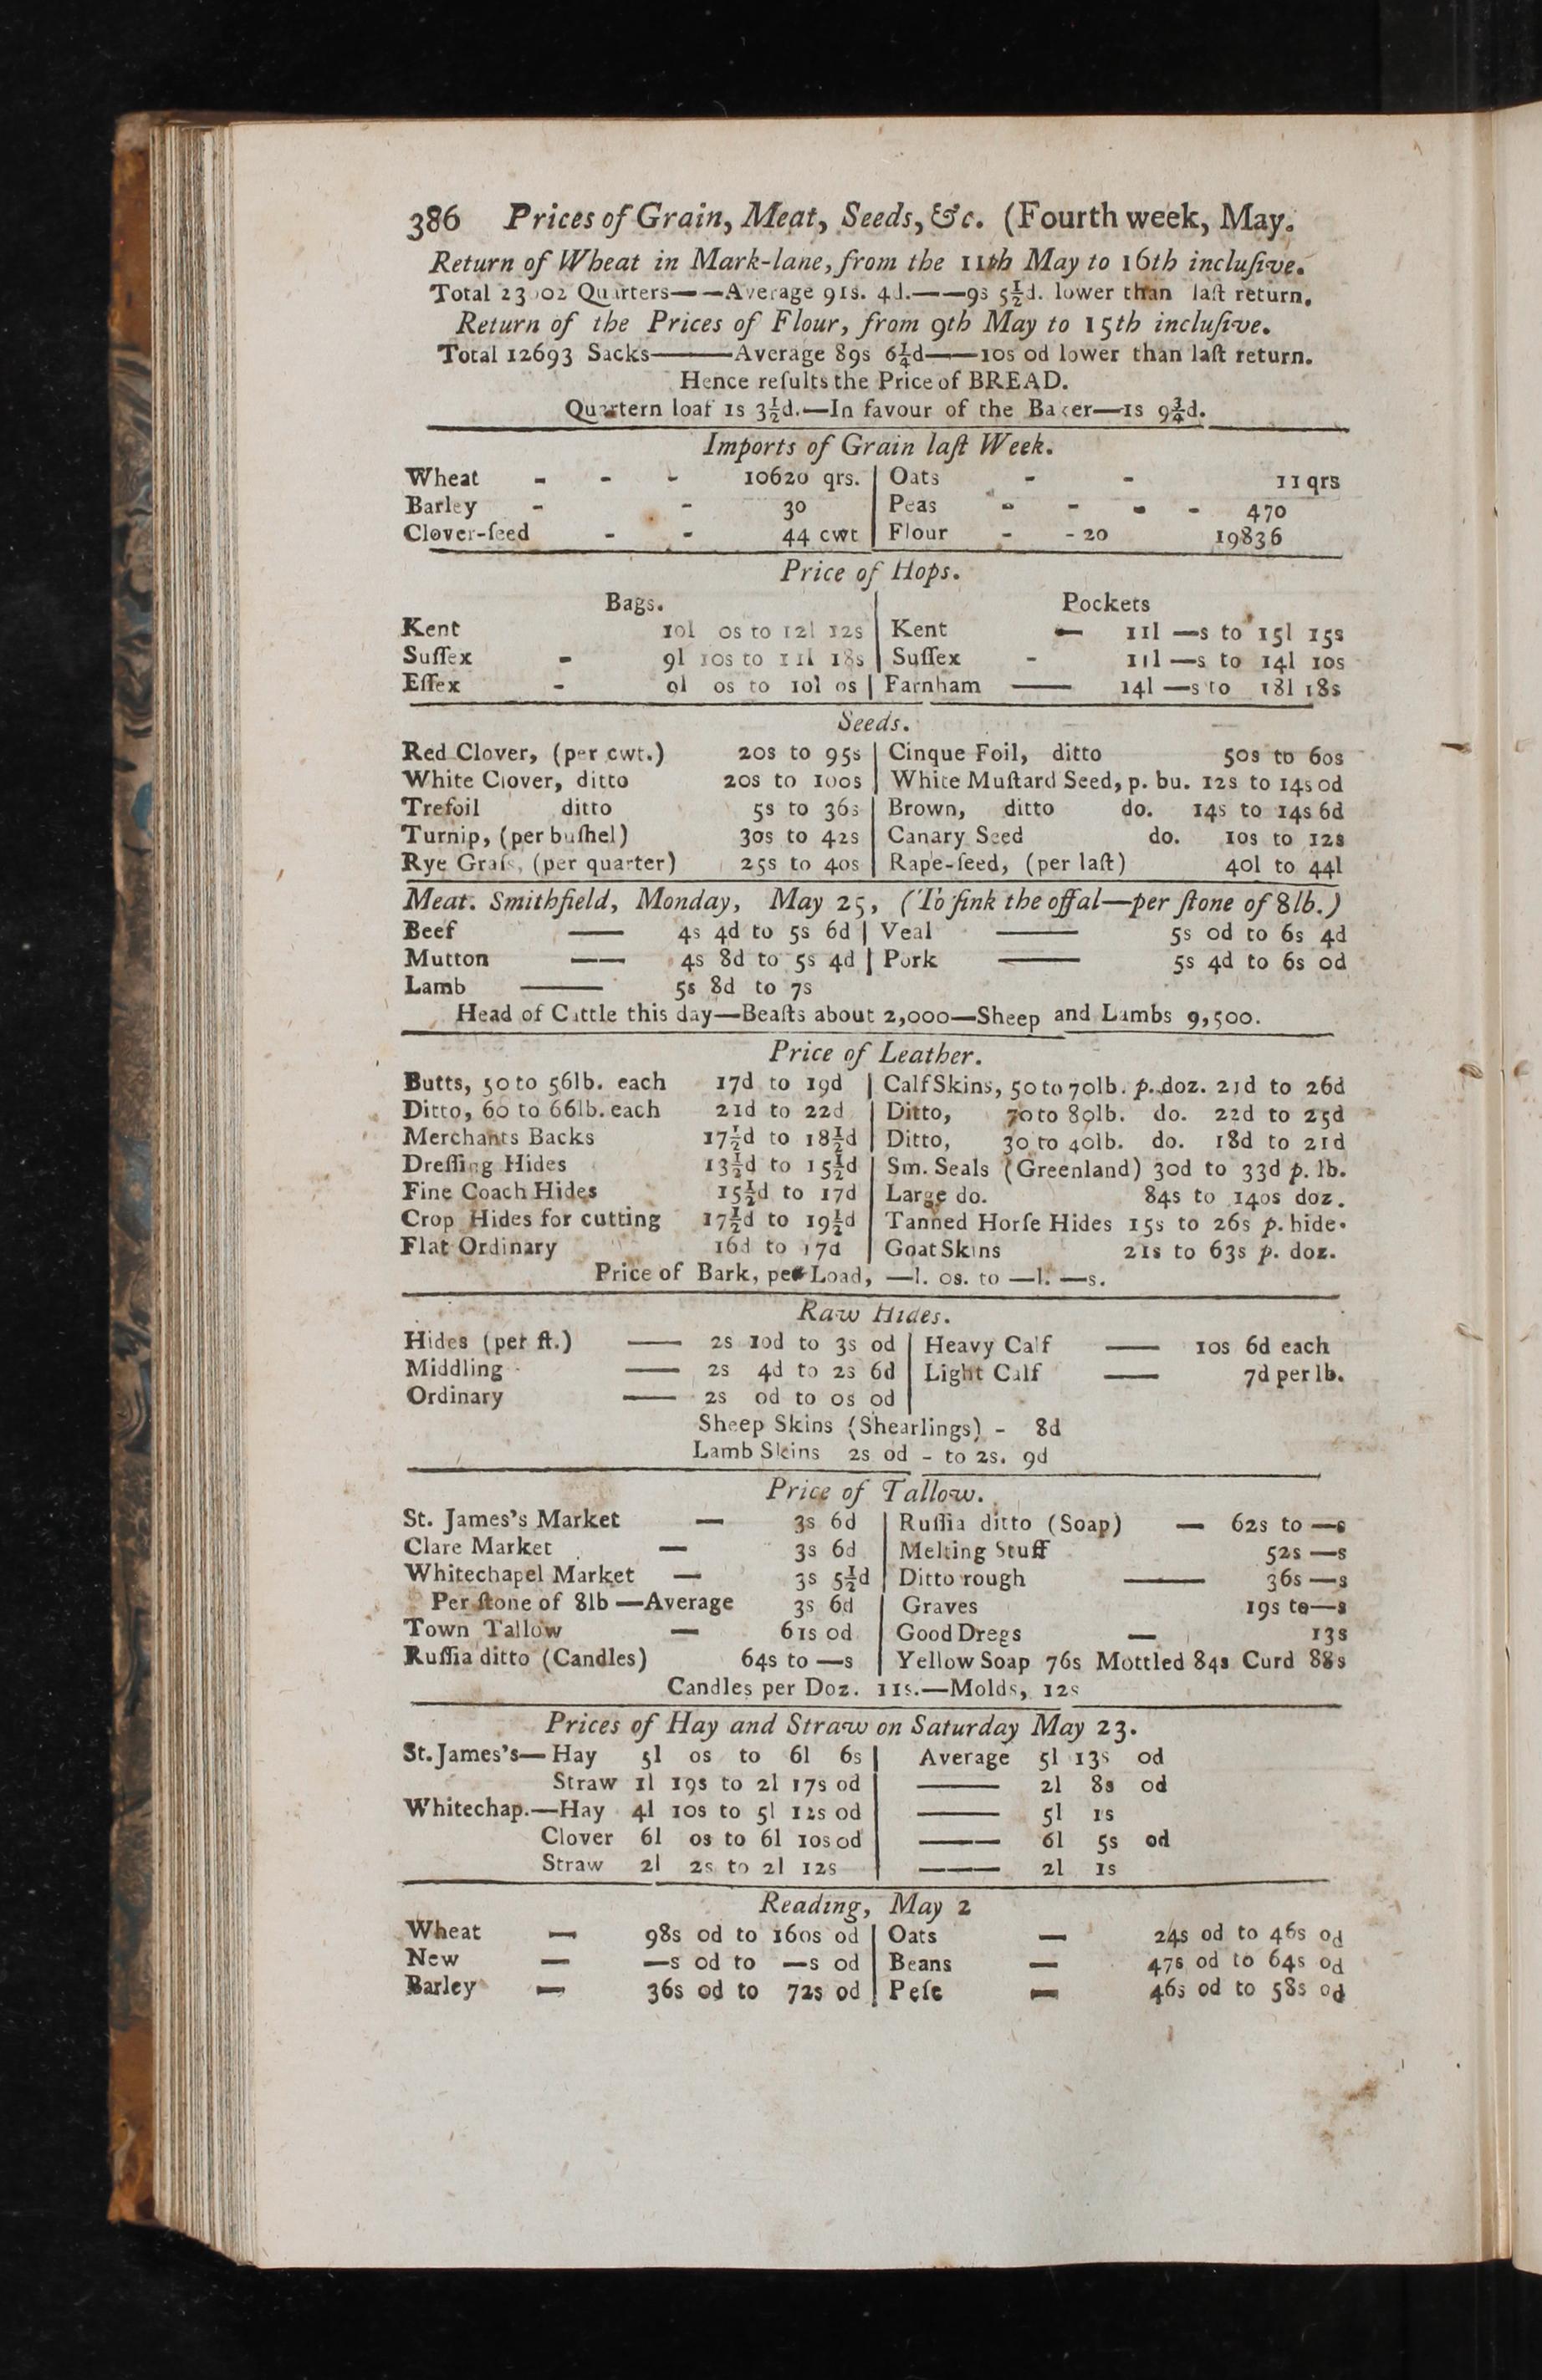 386 Prices of Grain, Meat, Seeds, &c. (Fourth week, May.
Return of Wheat in Mark-lane, from the 11th May to 16th incluſive.
Total 23002 Quarters— —Average 91s. 4d.— —9s 5½d. lower than laſt return.
Return of the Prices of Flour, from 9th May to 15th incluſive.
Total 12693 Sacks———Average 89s 6¼d——10s 0d lower than laſt return.
Hence reſults the Price of BREAD.
Quartern loaf 1s 3½d.—In favour of the Baker—1s 9¾d.
Imports of Grain laſt Week.
Wheat - - - 10620 qrs. | Oats - - 11 qrs
Barley - - 30 | Peas - - - - 470
Clover-ſeed - - 44 cwt | Flour - - 20 19836
Price of Hops.
Bags. | Pockets
Kent 10l 0s to 12l 12s | Kent — 11l —s to 15l 15s
Suſſex - 9l 10s to 11l 18s | Suſſex - 11l —s to 14l 10s
Eſſex - 0l 0s to 10l 0s | Farnham —— 14l —s to 18l 18s
Seeds.
Red Clover, (per cwt.) 20s to 95s | Cinque Foil, ditto 50s to 60s
White Clover, ditto 20s to 100s | White Muſtard Seed, p. bu. 12s to 14s 0d
Trefoil ditto 5s to 36s | Brown, ditto do. 14s to 14s 6d
Turnip, (per buſhel) 30s to 42s | Canary Seed do. 10s to 12s
Rye Graſs, (per quarter) 25s to 40s | Rape-ſeed, (per laſt) 40l to 44l
Meat. Smithfield, Monday, May 25, (To ſink the offal—per ſtone of 8lb.)
Beef —— 4s 4d to 5s 6d | Veal —— 5s 0d to 6s 4d
Mutton —— 4s 8d to 5s 4d | Pork —— 5s 4d to 6s 0d
Lamb —— 5s 8d to 7s
Head of Cattle this day—Beaſts about 2,000—Sheep and Lambs 9,500.
Price of Leather.
Butts, 50 to 56lb. each 17d to 19d | Calf Skins, 50 to 70lb. p. doz. 21d to 26d
Ditto, 60 to 66lb. each 21d to 22d | Ditto, 70 to 80lb. do. 22d to 25d
Merchants Backs 17½d to 18½d | Ditto, 30 to 40lb. do. 18d to 21d
Dreſſing Hides 13½d to 15½d | Sm. Seals (Greenland) 30d to 33d p. lb.
Fine Coach Hides 15½d to 17d | Large do. 84s to 140s doz.
Crop Hides for cutting 17½d to 19½d | Tanned Horſe Hides 15s to 26s p. hide.
Flat Ordinary 16d to 17d | Goat Skins 21s to 63s p. doz.
Price of Bark, per Load, —l. 0s. to —l. —s.
Raw Hides.
Hides (per ſt.) —— 2s 10d to 3s 0d | Heavy Calf —— 10s 6d each
Middling —— 2s 4d to 2s 6d | Light Calf —— 7d per lb.
Ordinary —— 2s 0d to 0s 0d |
Sheep Skins (Shearlings) - 8d
Lamb Skins 2s 0d - to 2s. 9d
Price of Tallow.
St. James's Market — 3s 6d | Ruſſia ditto (Soap) — 62s to —s
Clare Market — 3s 6d | Melting Stuff 52s —s
Whitechapel Market — 3s 5½d | Ditto rough —— 36s —s
Per ſtone of 8lb —Average 3s 6d | Graves 19s to—s
Town Tallow — 61s 0d | Good Dregs — 13s
Ruſſia ditto (Candles) 64s to —s | Yellow Soap 76s Mottled 84s Curd 88s
Candles per Doz. 11s.—Molds, 12s
Prices of Hay and Straw on Saturday May 23.
St. James's— Hay 5l 0s to 6l 6s | Average 5l 13s 0d
Straw 1l 19s to 2l 17s 0d | —— 2l 8s 0d
Whitechap.—Hay 4l 10s to 5l 12s 0d | —— 5l 1s
Clover 6l 0s to 6l 10s 0d | —— 6l 5s 0d
Straw 2l 2s to 2l 12s | —— 2l 1s
Reading, May 2
Wheat — 98s 0d to 160s 0d | Oats — 24s 0d to 46s 0d
New — —s 0d to —s 0d | Beans — 47s 0d to 64s 0d
Barley — 36s 0d to 72s 0d | Peſe — 46s 0d to 58s 0d